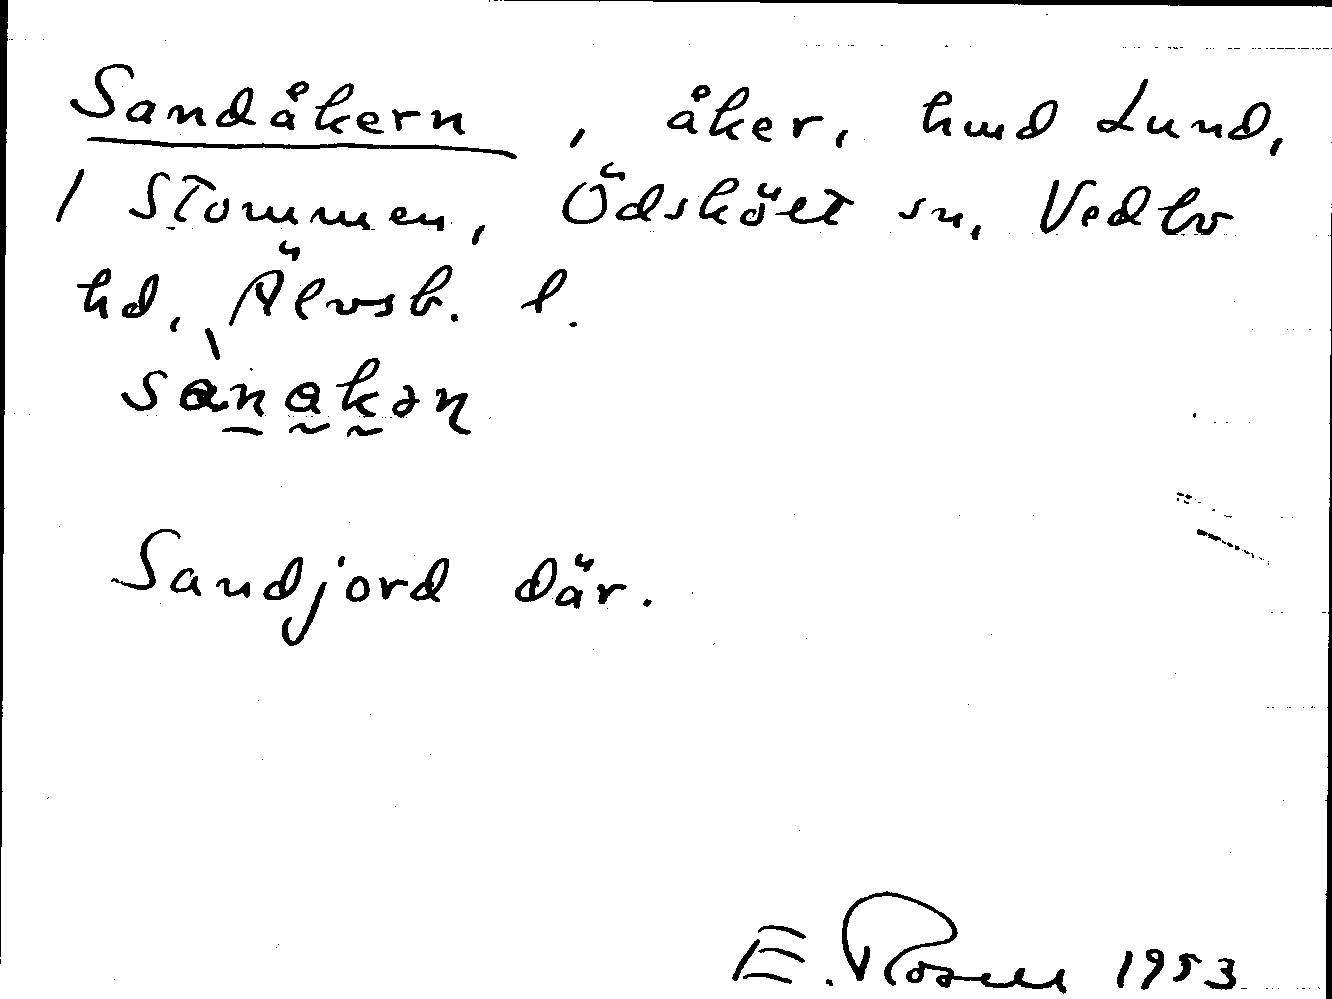 Sandåkern, åker, hmd Lund,
/ Stommen, Ödskölt sn, Vedbo
hd, Älvsb. l.
Sandjord där.
E. Rosell 1953